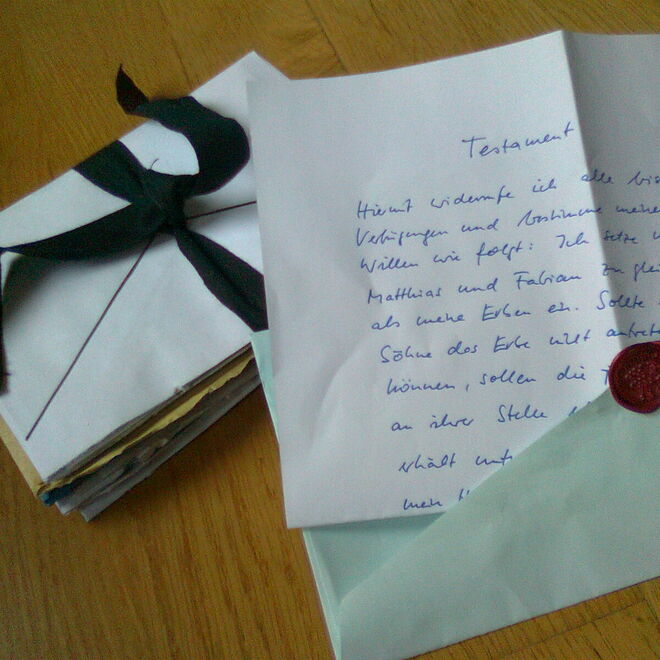 Testament
Hiermit widerrufe ich alle bis
Verfügungen und bestimme meine
Willen wie folgt: Ich setze
Matthias und Fabian zu glei
als meine Erben ein. Sollte
Söhne das Erbe nicht antrete
können, sollen die
an ihrer Stelle
erhält
mein